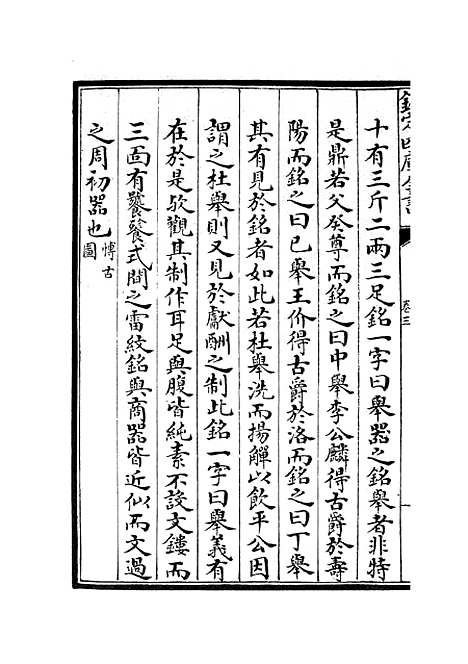 欽定四庫全書
卷三
十有三斤二兩三足銘一字曰舉器之銘舉者非特
是鼎若父癸尊而銘之曰中舉李公麟得古爵於壽
陽而銘之曰己舉王玠得古爵於洛而銘之曰丁舉
其有見於銘者如此若杜舉洗而揚觶以飲平公因
謂之杜舉則又見於獻酬之制此銘一字曰舉義有
在於是歟觀其制作耳足與腹皆純素不設文鏤而
三面有饕餮式間之雷紋銘與商器皆近似而文過
之周初器也博古
圖